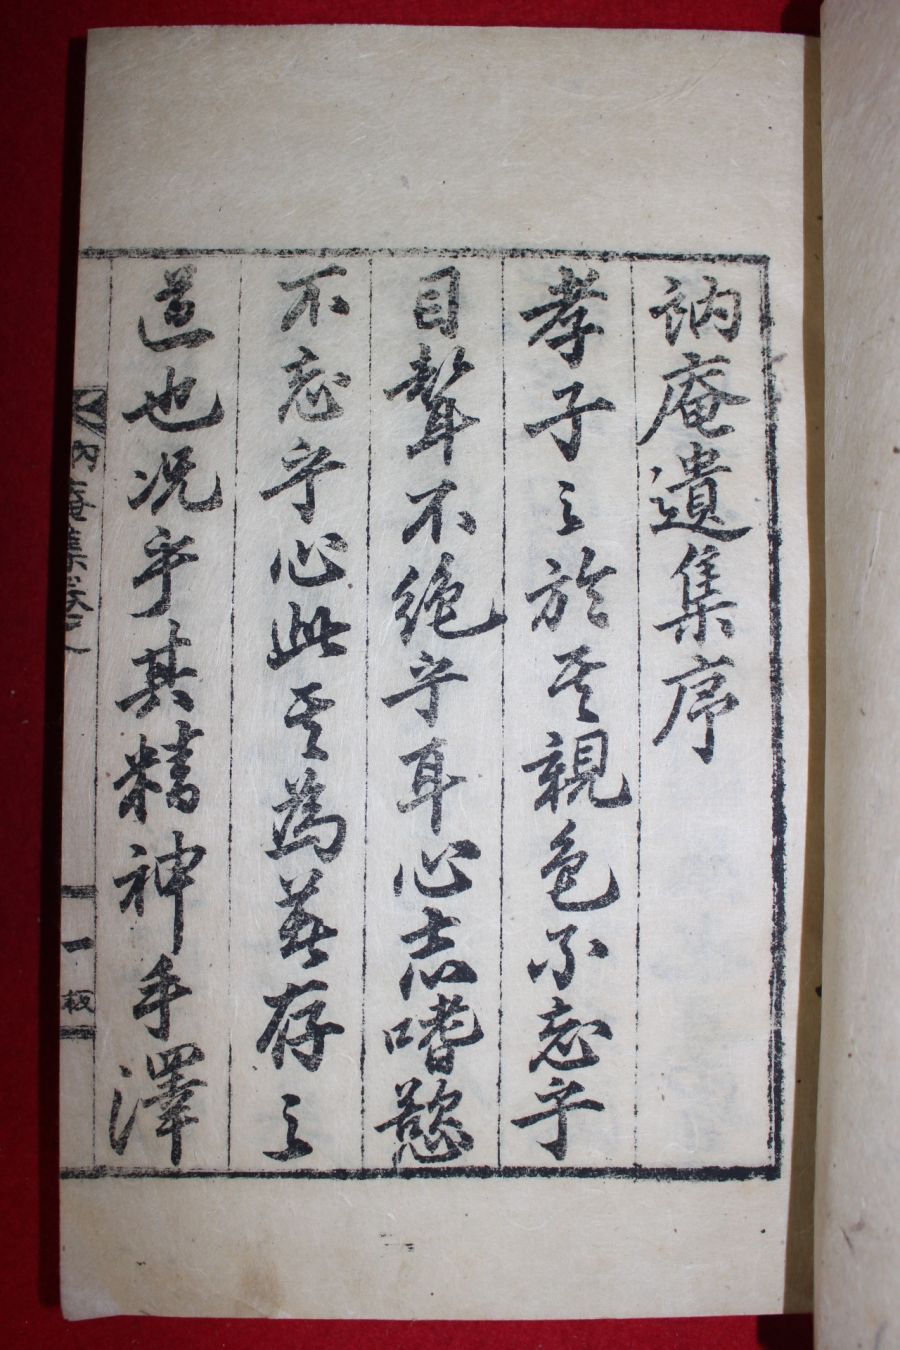 訥庵遺集序
孝子之於其親色不忘乎
目聲不絶乎耳心志嗜慾
不忘乎心此其爲著存之
道也况乎其精神手澤
訥庵集卷之
一
板